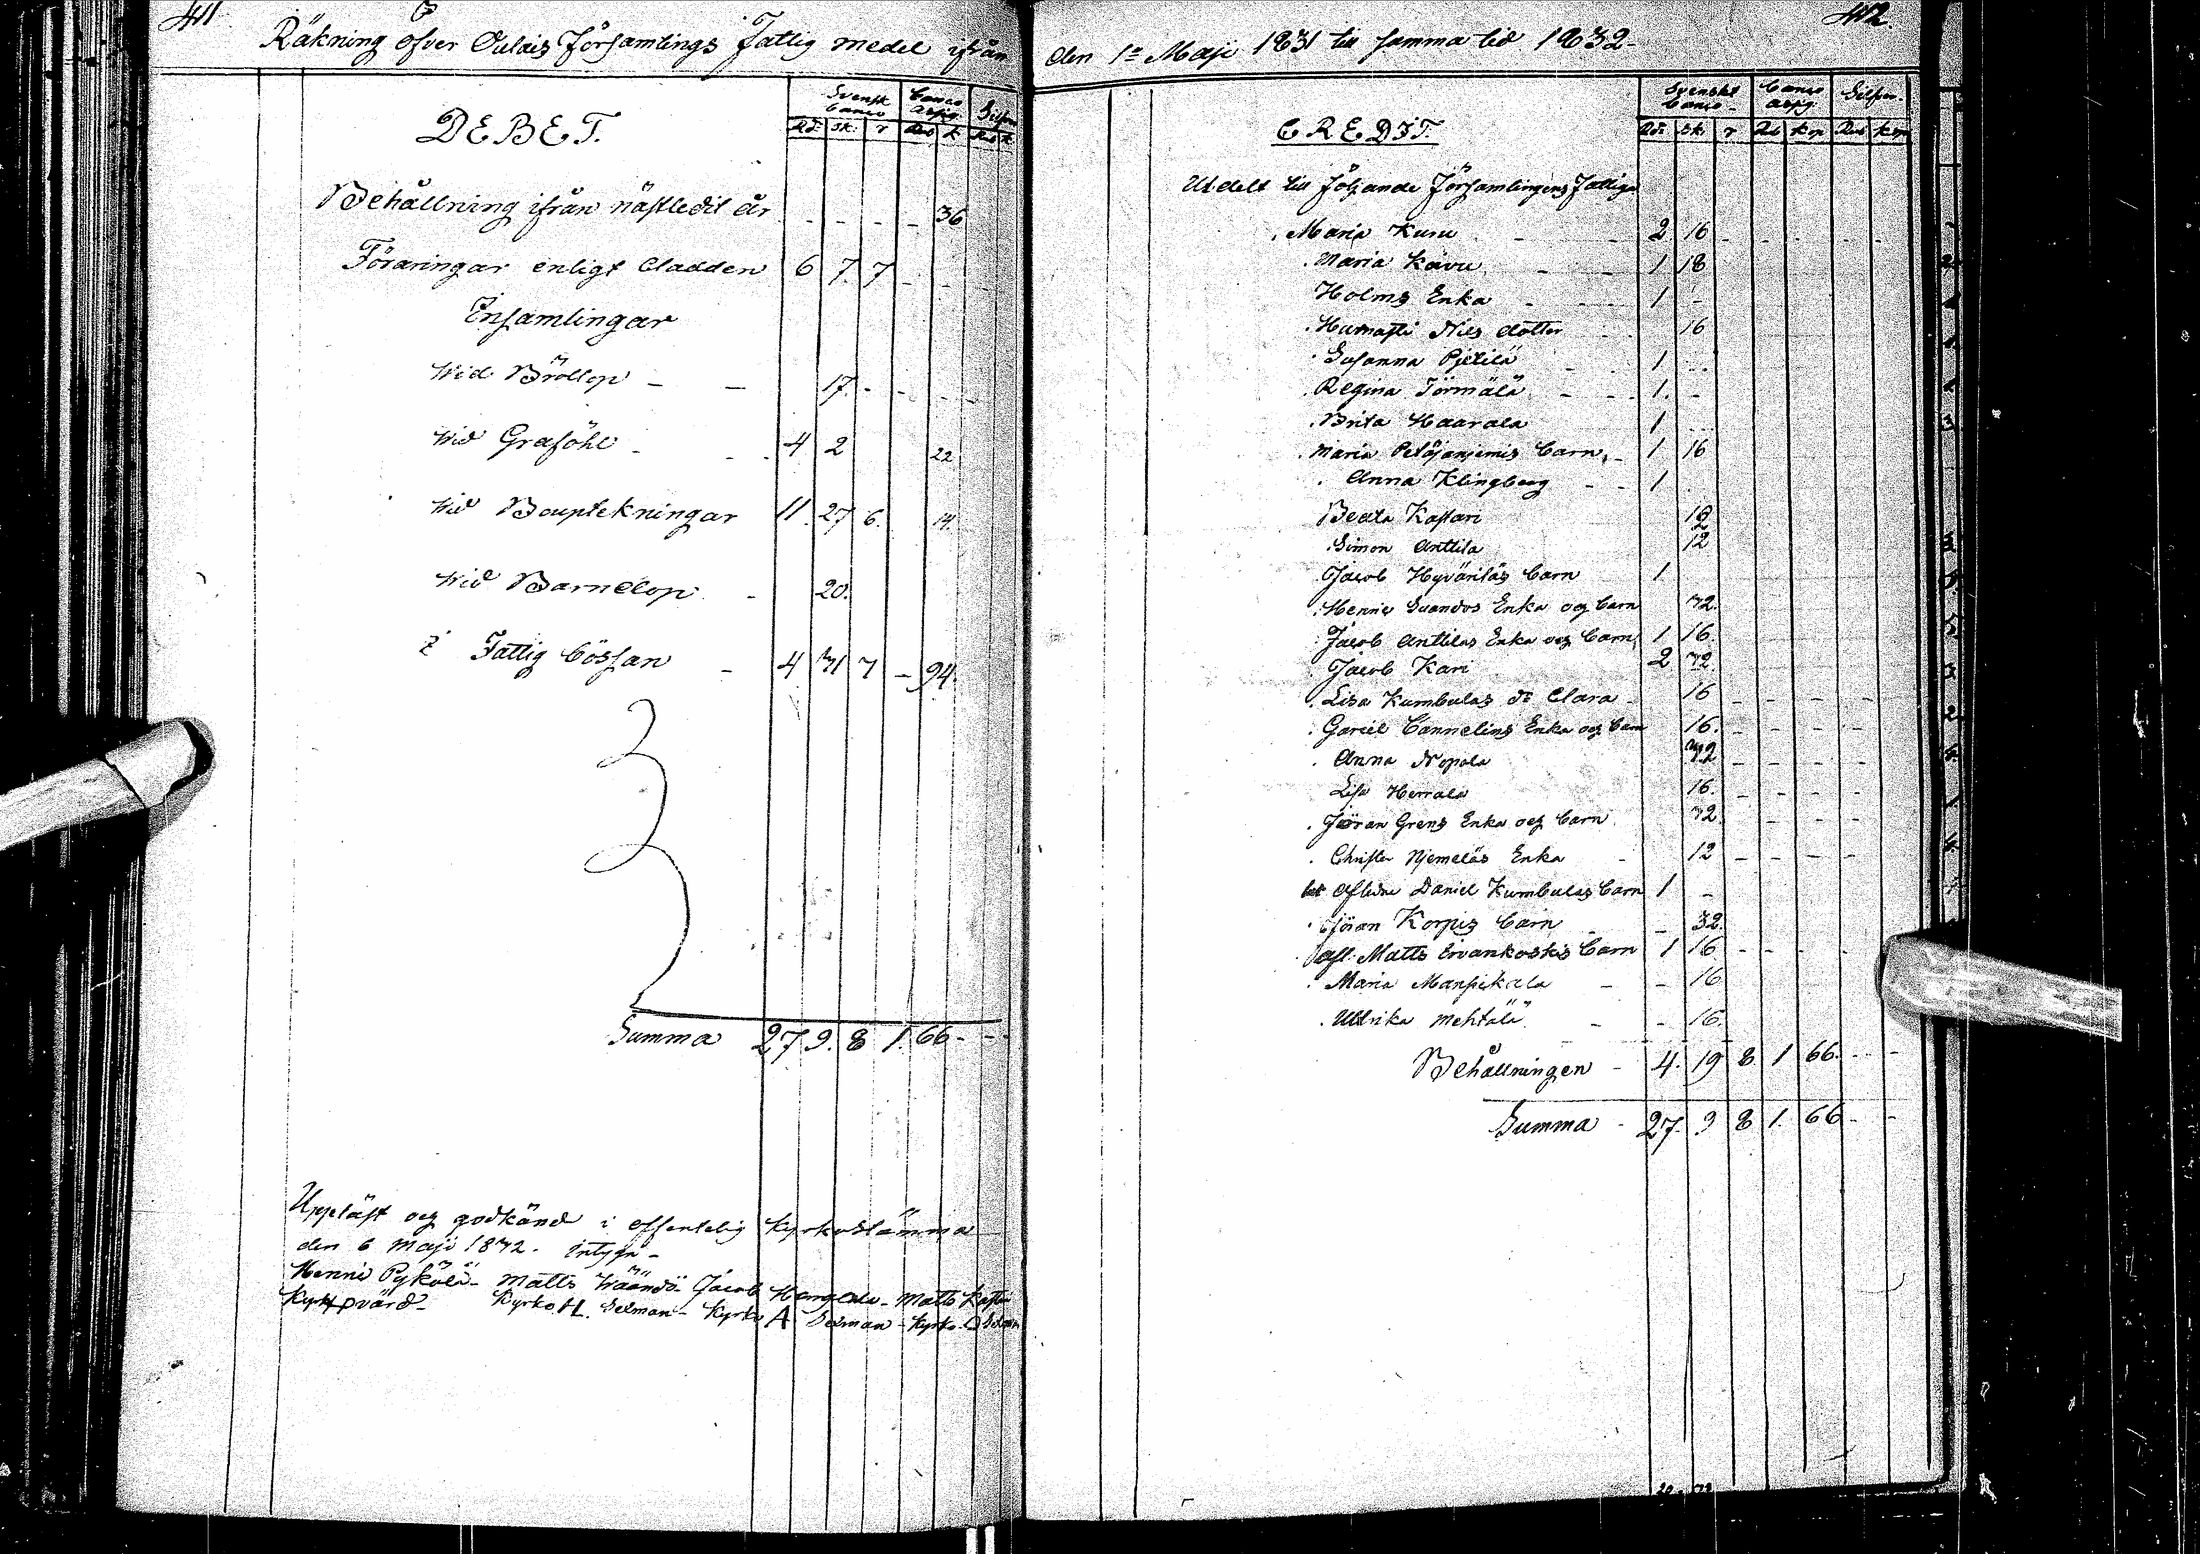 411
Räkning öfver Oulais Församlings Fattig medel ifrån
DEBET.
Svensk Banco
Banco Assig.
Silfver
Rd. sk. r Rub k Rub k
Behållning ifrån nästledit år - - - - 36
Föräringar enligt Cladden 6 7. 7 - - -
Insamlingar
wid Bröllop - - 17. - - - -
wid Graföhl - - 4 2 22
wid Bouptekningar 11. 27 6. 14.
wid Barnelop. - 20.
i Fattig bössan - 4 31 7 - 94.
Summa 27 9. 8 1. 66 - - -
Uppläst och godkänd i offentelig kyrkostämma
den 6 Maji 1832. intyga -
Henric Pyköli - Matts - Jacob - Matts
Kyrkovärd - Kyrko H. Sexman - Kyrko A Sexman - Kyrko Sexman
412.
den 1ª Maji 1831 till samma tid 1832 -
CREDIT.
Svenskt Banco -
Banco Assig.
Silfver.
Rd: sk. r Rub kop Rub kop
Utdelt till följande Församlingens Fattiga
. Maria Kuru - - 2. 16 - - - - -
. Maria Kävu - - 1 18
Holms Enka - - 1 -
. Humasti Nils dotter 16
. Susanna Pjetilä - 1 - -
. Regina Törmälä - - 1. -
. Brita Haarala 1
. Maria Carn - 1 16
. Anna Klingberg - - 1
Beata Kastari 18
. Simon Anttila 12
. Jacob Hyväriläs Carn 1
. Henric Suandos Enka och barn 32.
. Jacob Anttilas Enka och Carn 1 16.
. Jacob Kari 2 32.
. Lisa Kumbulas dr Clara - 16 - - - -
. Gariel Cannelins Enka och Carn 16. - - - -
. Anna Nopola 32 - - - -
Lisa Herrala 16. - - - -
. Jöran Grens Enka och Carn 32. - - -
. Christer Njemeläs Enka - 12 - - - -
Aflidne Daniel Kumbulas Carn 1 -
. Jöran Korpis Carn - - 32.
. afl. Matts Ervankoskis Carn 1 16 - - - -
. Maria Manpekala - - 16
. Ullrika Mehtälä - - 16.
Behållningen - 4. 19 8 1 66. - -
Summa - 27. 9 8 1. 66 - -